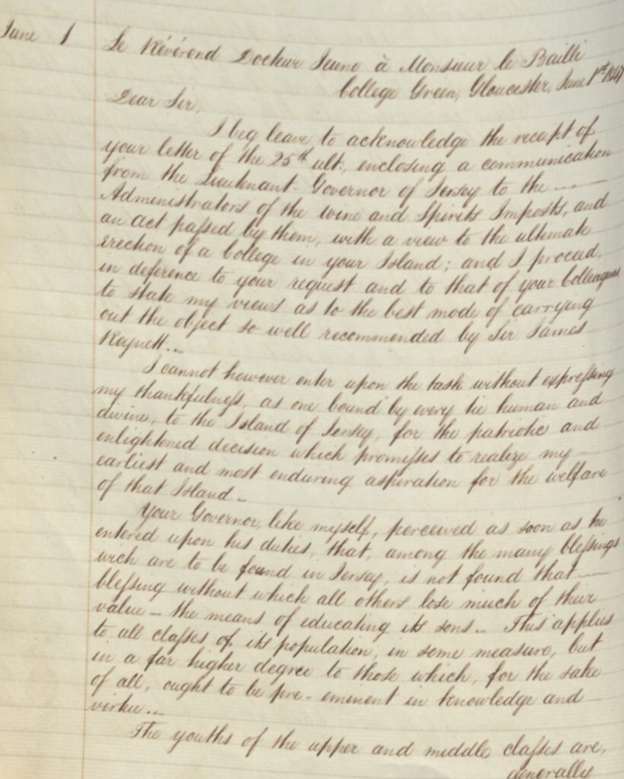 June 1 Le Révérend Docteur Jeune à Monsieur le Bailli
College Green, Gloucester, June 1st 1847
Dear Sir,
I beg leave to acknowledge the receipt of
your letter of the 25th ult., enclosing a communication
from the Lieutenant-Governor of Jersey to the
Administrators of the Wine and Spirits Imposts, and
an act passed by them, with a view to the ultimate
erection of a College in your Island; and I proceed,
in deference to your request and to that of your Colleagues
to state my views as to the best mode of carrying
out the object so well recommended by Sir James
Reynett...
I cannot however enter upon the task without expressing
my thankfulness, as one bound by every tie human and
divine, to the Island of Jersey, for the patriotic and
enlightened decision which promisses to realize my
earliest and most enduring aspiration for the welfare
of that Island -
Your Governor, like myself, perceived as soon as he
entered upon his duties, that, among the many blessings
wich are to be found in Jersey, is not found that
blessing without which all others lose much of their
value - the means of educating its sons.. This applies
to all classes of its population, in some measure, but
in a far higher degree to those which, for the sake
of all, ought to be pre-eminent in knowledge and
virtue...
The youths of the upper and middle classes are,
generally